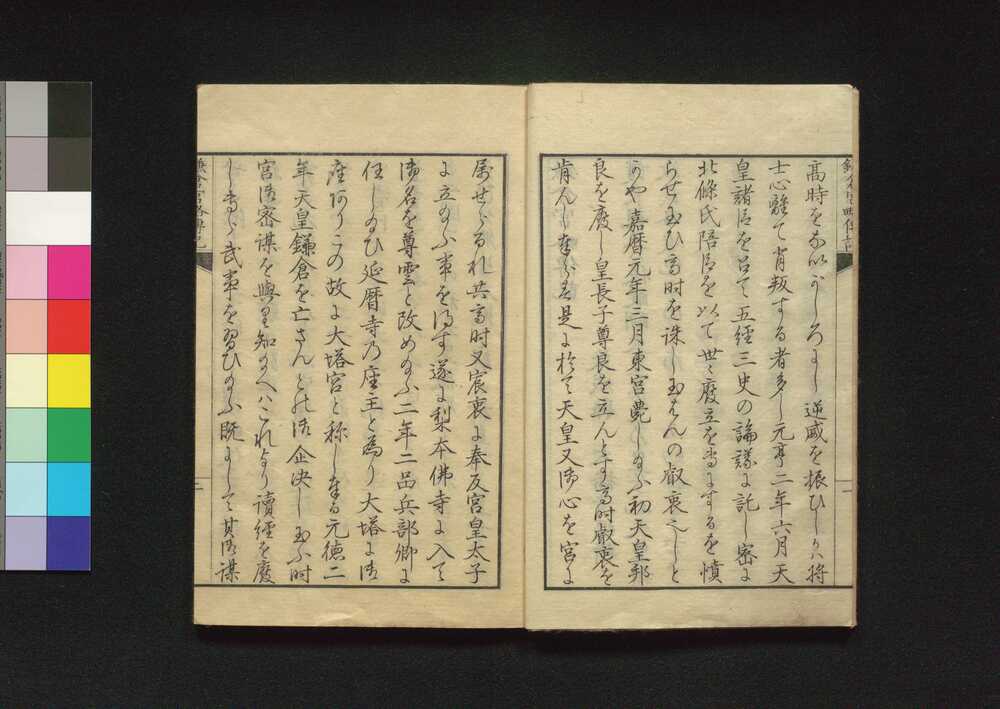 高時をないがしろにし逆威を振ひしかハ将
士心離て背叛する者多し元亨二年六月天
皇諸臣を召て五経三史の論議に託し密に
北條氏陪臣を以て世々廢立を恣にするを憤
らせ玉ひ高時を誅し玉はんの叡衷
や嘉暦元年三月東宮薨し給ふ初天皇邦
良を廢し皇長子尊良を立んとす高時叡衷を
肯んし奉らす是に於て天皇又御心を宮に
属せらるれ共高時又宸衷に奉反宮皇太子
に立給ふ事を得す遂に梨本佛寺に入て
御名を尊雲と改め給ふ二年二品兵部卿に
任し給ひ延暦寺乃座主と為り大塔に御
座ありこの故に大塔宮と称し奉る元徳二
年天皇鎌倉を亡さんとの御企決し玉ふ時
宮御密謀を與り知給へハこれより讀經を廢
し専ら武事を習ひ給ふ既にして其御謀